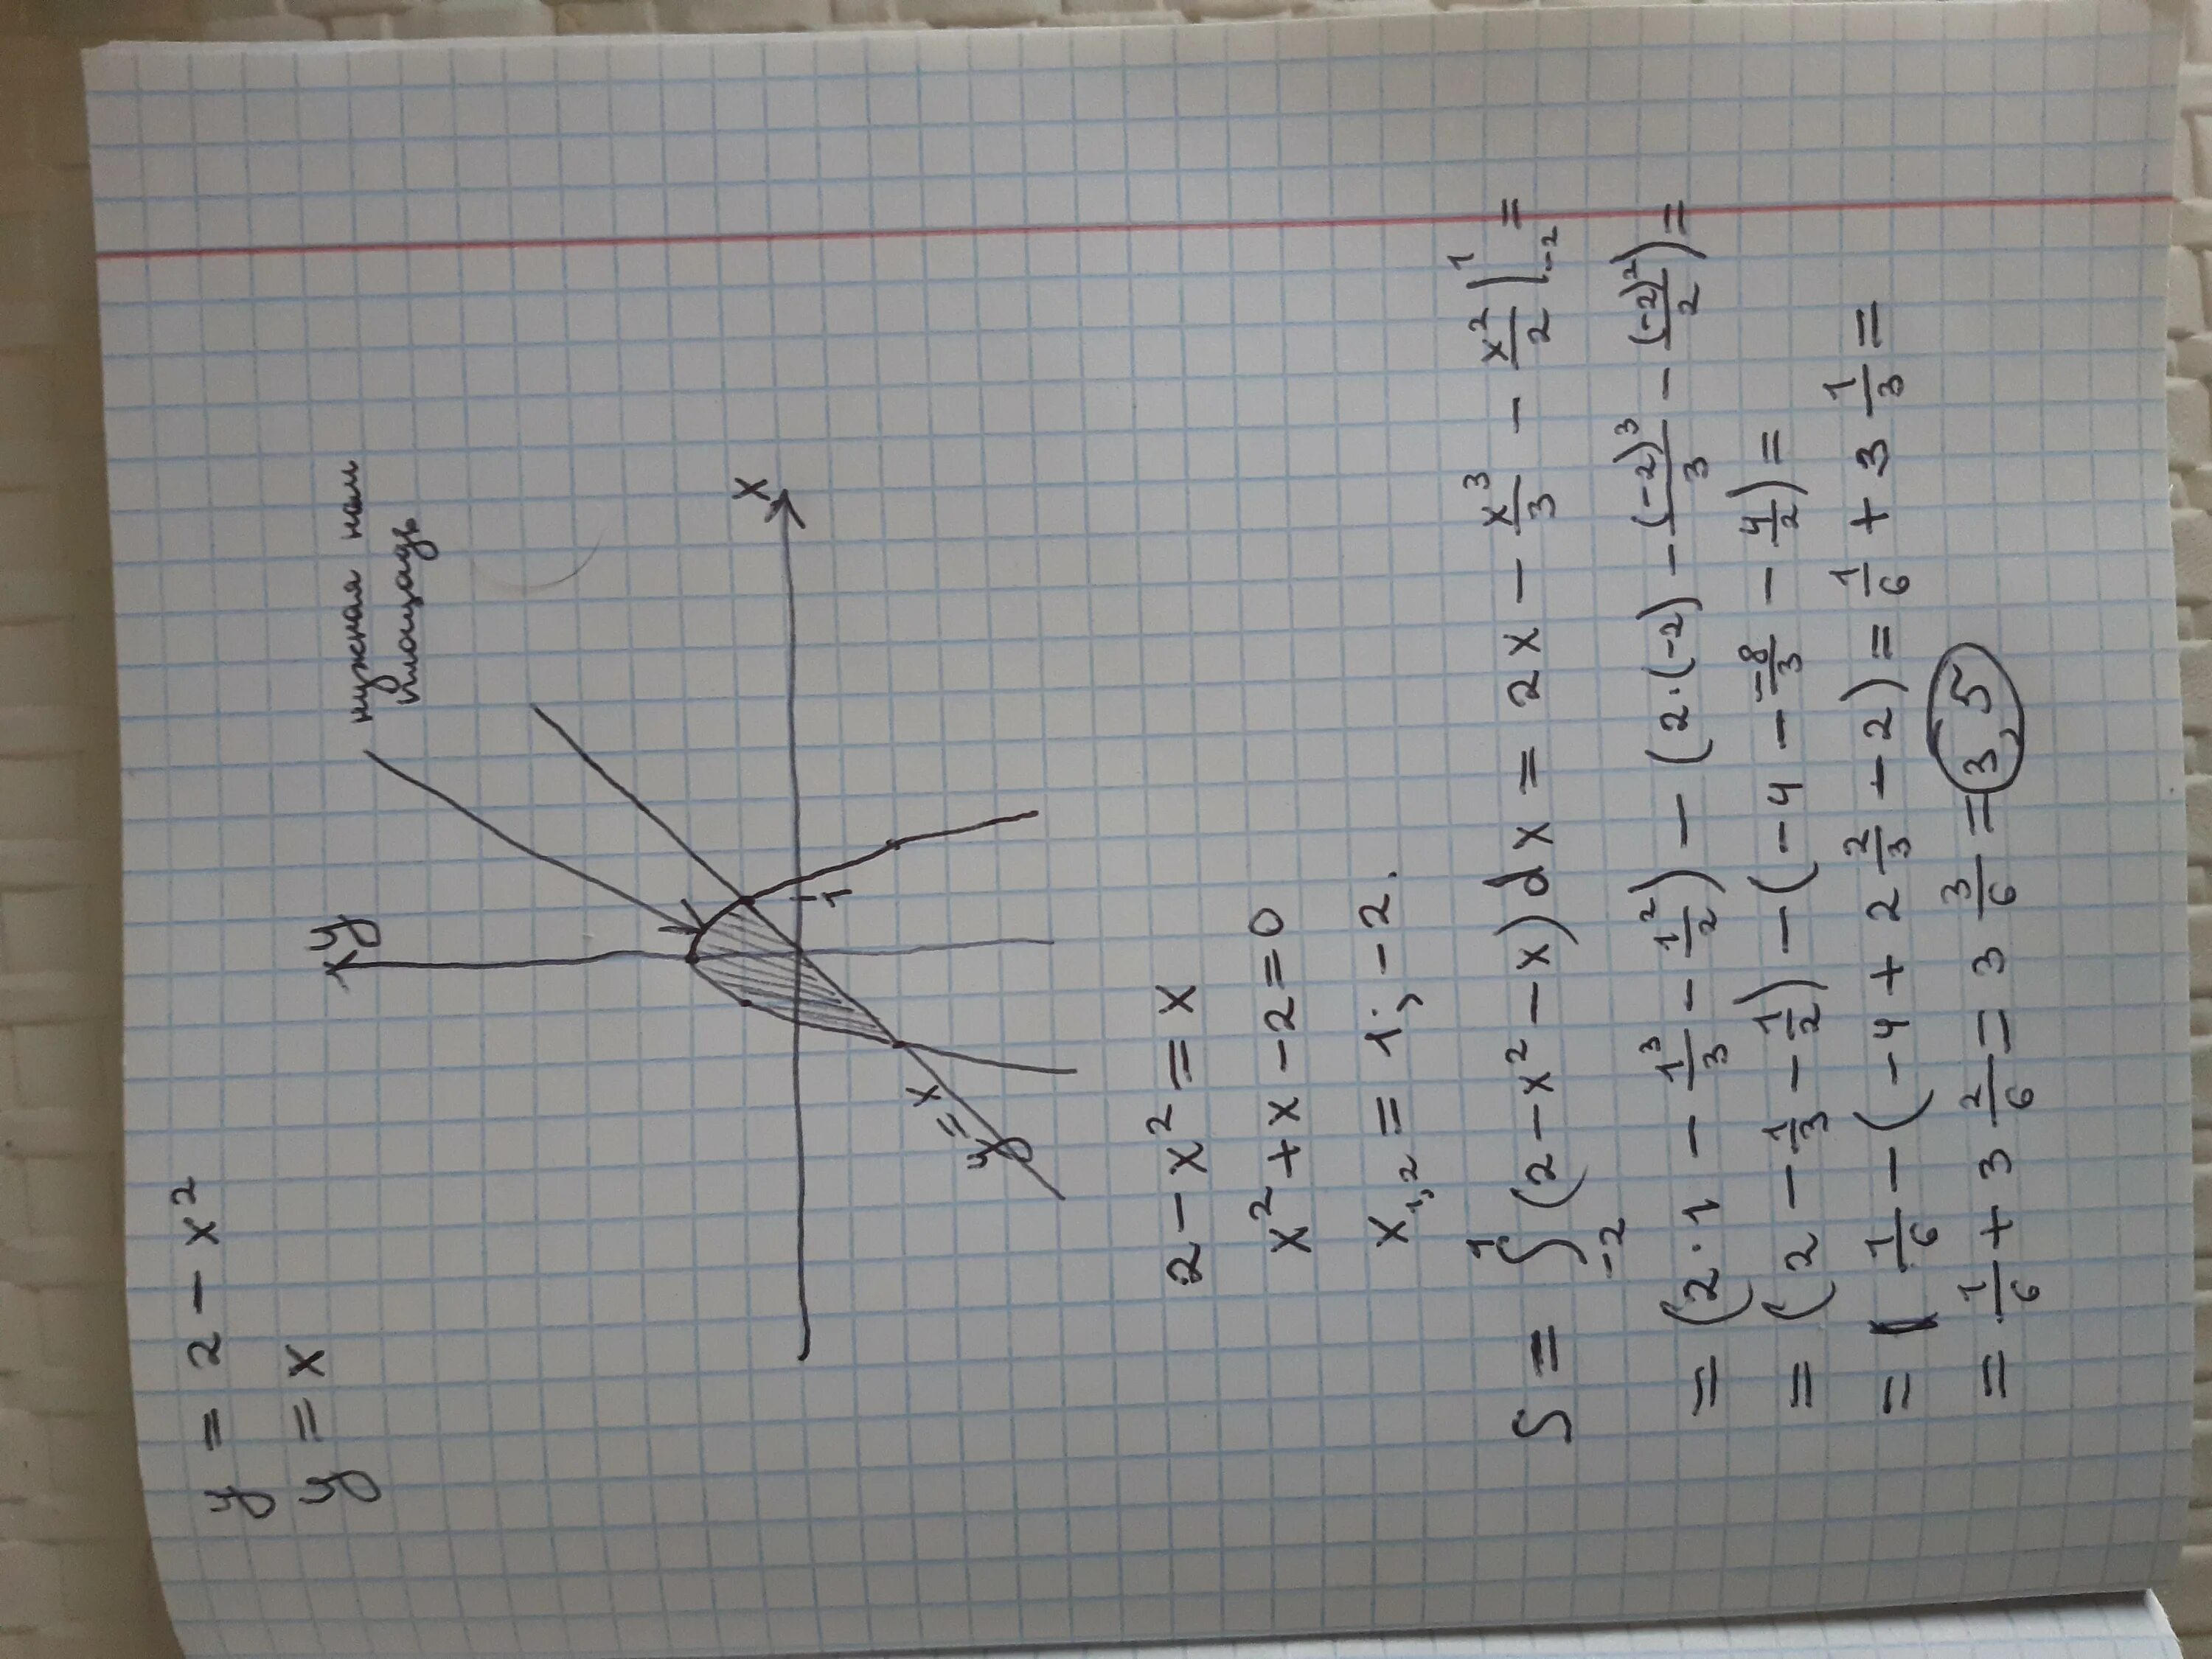 y = 2 - x²
y = x
y
нужная нам
площадь
x
1
y = x
2 - x² = x
x² + x - 2 = 0
x₁,₂ = 1; -2.
S = ∫₋₂¹ (2 - x² - x)dx = 2x - x³/3 - x²/2 |₋₂¹ =
= (2·1 - 1³/3 - 1²/2) - (2·(-2) - (-2)³/3 - (-2)²/2) =
= (2 - 1/3 - 1/2) - (-4 - -8/3 - 4/2) =
= 1/6 - (-4 + 2 2/3 - 2) = 1/6 + 3 1/3 =
= 1/6 + 3 2/6 = 3 3/6 = 3,5